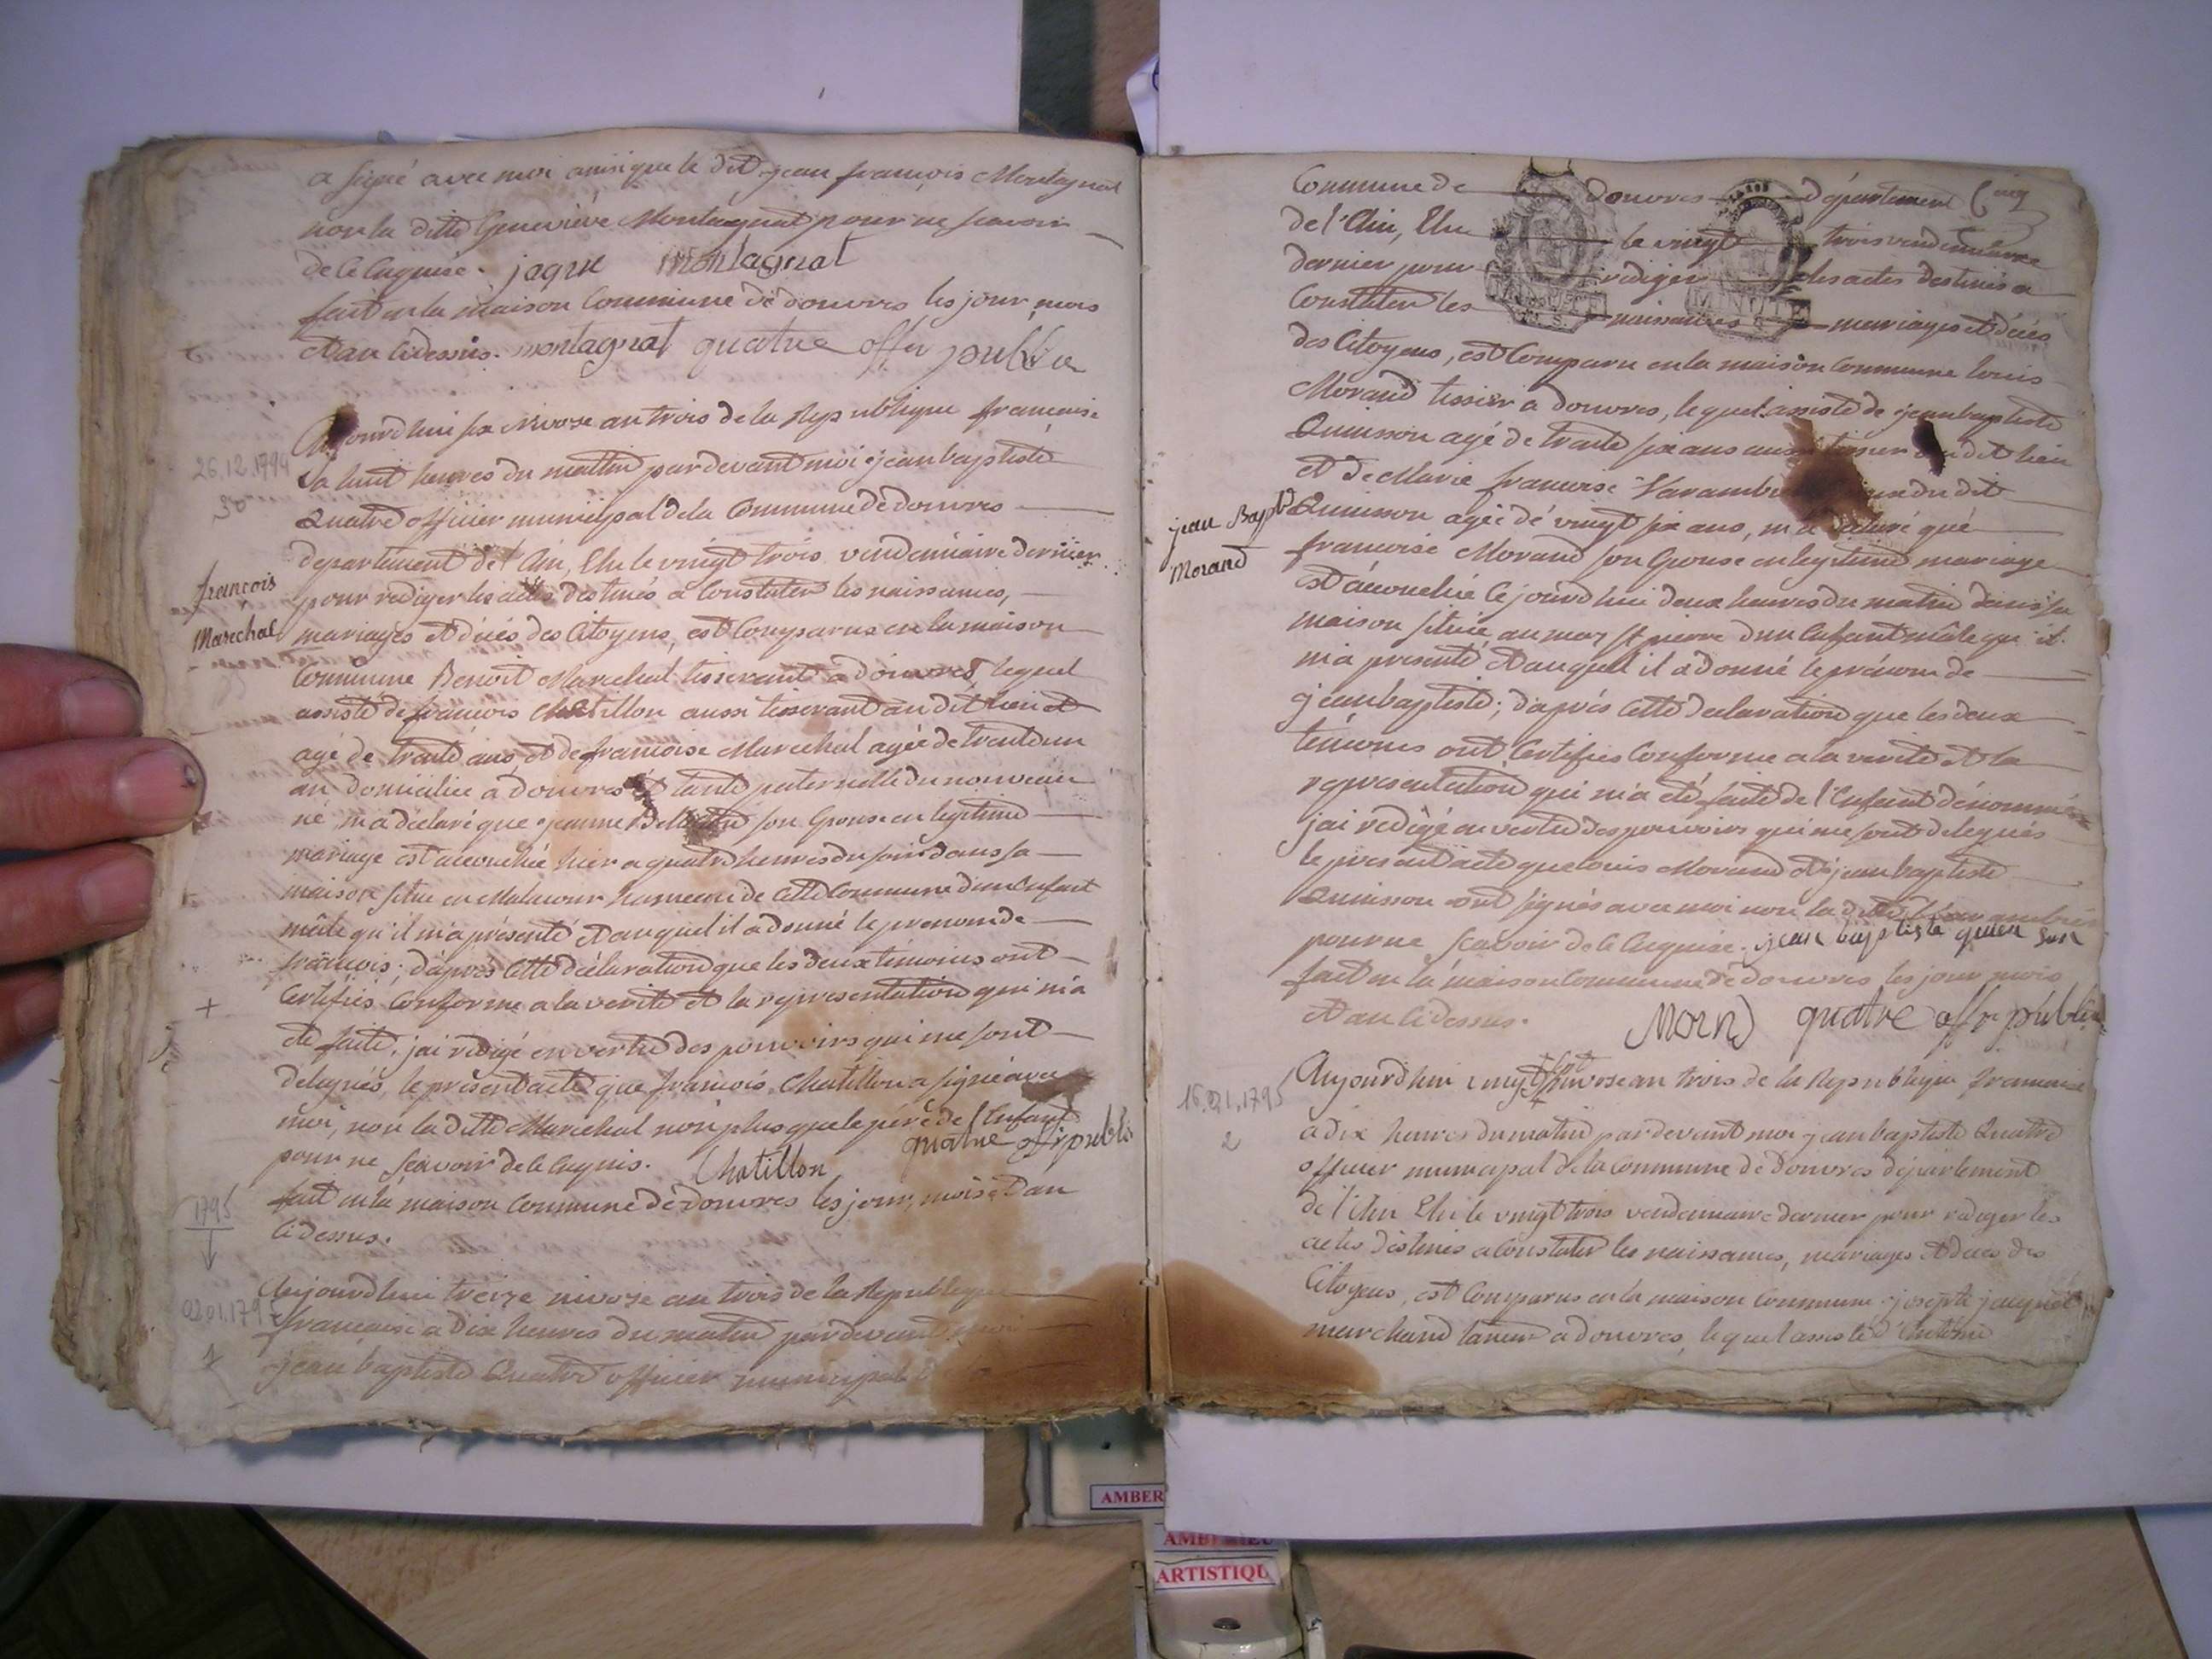 a signé avec moi ainsi que le dit jean françois Montagnat
non la ditte Geneviève Montagnat pour ne scavoir
de ce enquise. jaque montagnat
fait en la maison Commune de douvres les jour mois
et an cidessus. montagnat quatre offr public
Aujourdhui six nivose an trois de la Republique francaise
26.12.1794
a huit heures du mattin pardevant moi jean baptiste
30
Quatre officier municipal de la Commune de douvres
departement de l'Ain, Elu le vingt trois vendemiaire dernier
françois
Marechal
pour rediger les actes destinés a Constater les naissances,
mariages et décés des Citoyens, est Comparus en la maison
Commune Benoit Marechal tisserant a douvres, lequel
assisté de francois Chatillon aussi tisserant au dit lieu et
agé de trente ans, et de francoise Marechal agée de trente un
an domiciliée a douvres et tante paternelle du nouveau
né, m'a déclaré que jeanne son Epouse en legitime
mariage est accouchée hier a quatre heures du soir dans sa
maison situe en Malacour hameau de cette Commune d'un Enfant
mâle qu'il m'a présenté et auquel il a donné le prenom de
francois; d'après cette déclaration que les deux témoins ont
Certifiés Conforme a la verité et la representation qui m'a
+
été faite, j'ai redigé en vertu des pouvoirs qui me sont
delegués, le présent acte que francois Chatillon a signé avec
moi, non la ditte Marechal non plus que le pére de l'Enfant
pour ne scavoir de ce enquis. Chatillon quatre offr public
1795
fait en la maison Commune de douvres les jour, mois et an
cidessus.
Aujourdhui treize nivose an trois de la Republique
02.01.1795
francaise a dix heures du matin pardevant moi
1
jean baptiste Quatre officier municipal
Commune de douvres département Cinq
de l'Ain, Elu le vingt trois vendemiaire
dernier pour rediger les actes destinés a
Constater les naissances mariages et décés
MINUTE
des Citoyens, est Comparu en la maison Commune louis
Morand tissier a douvres, lequel assisté de jean baptiste
Quinson agé de trente six ans aussi tissier au dit lieu
et de Marie francoise du dit
jean Bapte
Morand
Quinson agée de vingt six ans, m'a declaré que
francoise Morand son Epouse en legitime mariage
est accouchée ce jourdhui deux heures du matin dans sa
maison située au mas st pierre d'un Enfant mâle qu'il
m'a presenté et auquel il a donné le prénom de
jean baptiste; d'aprés cette declaration que les deux
témoins ont Certifiés Conforme a la verité et la
representation qui m'a été faite de l'Enfant dénommé
j'ai redigé en vertu des pouvoirs qui me sont delegués
le present acte que louis Morand et jean baptiste
Quinson ont signés avec moi non la ditte
pour ne scavoir de ce enquise. jean baptiste quen son
fait en la maison Commune de douvres les jour mois
et an cidessus. Morand quatre offr public
Aujourdhui vingt sept nivose an trois de la Republique francaise
16.01.1795
a dix heures du matin pardevant moi jean baptiste Quatre
2
officier municipal de la Commune de douvres département
de l'Ain Elu le vingt trois vendemiaire dernier pour rediger les
actes destinés a Constater les naissances, mariages et décés des
Citoyens, est Comparus en la maison Commune joseph
marchand taneur a douvres, lequel assisté d'Antoine
AMBER
ARTISTIQU